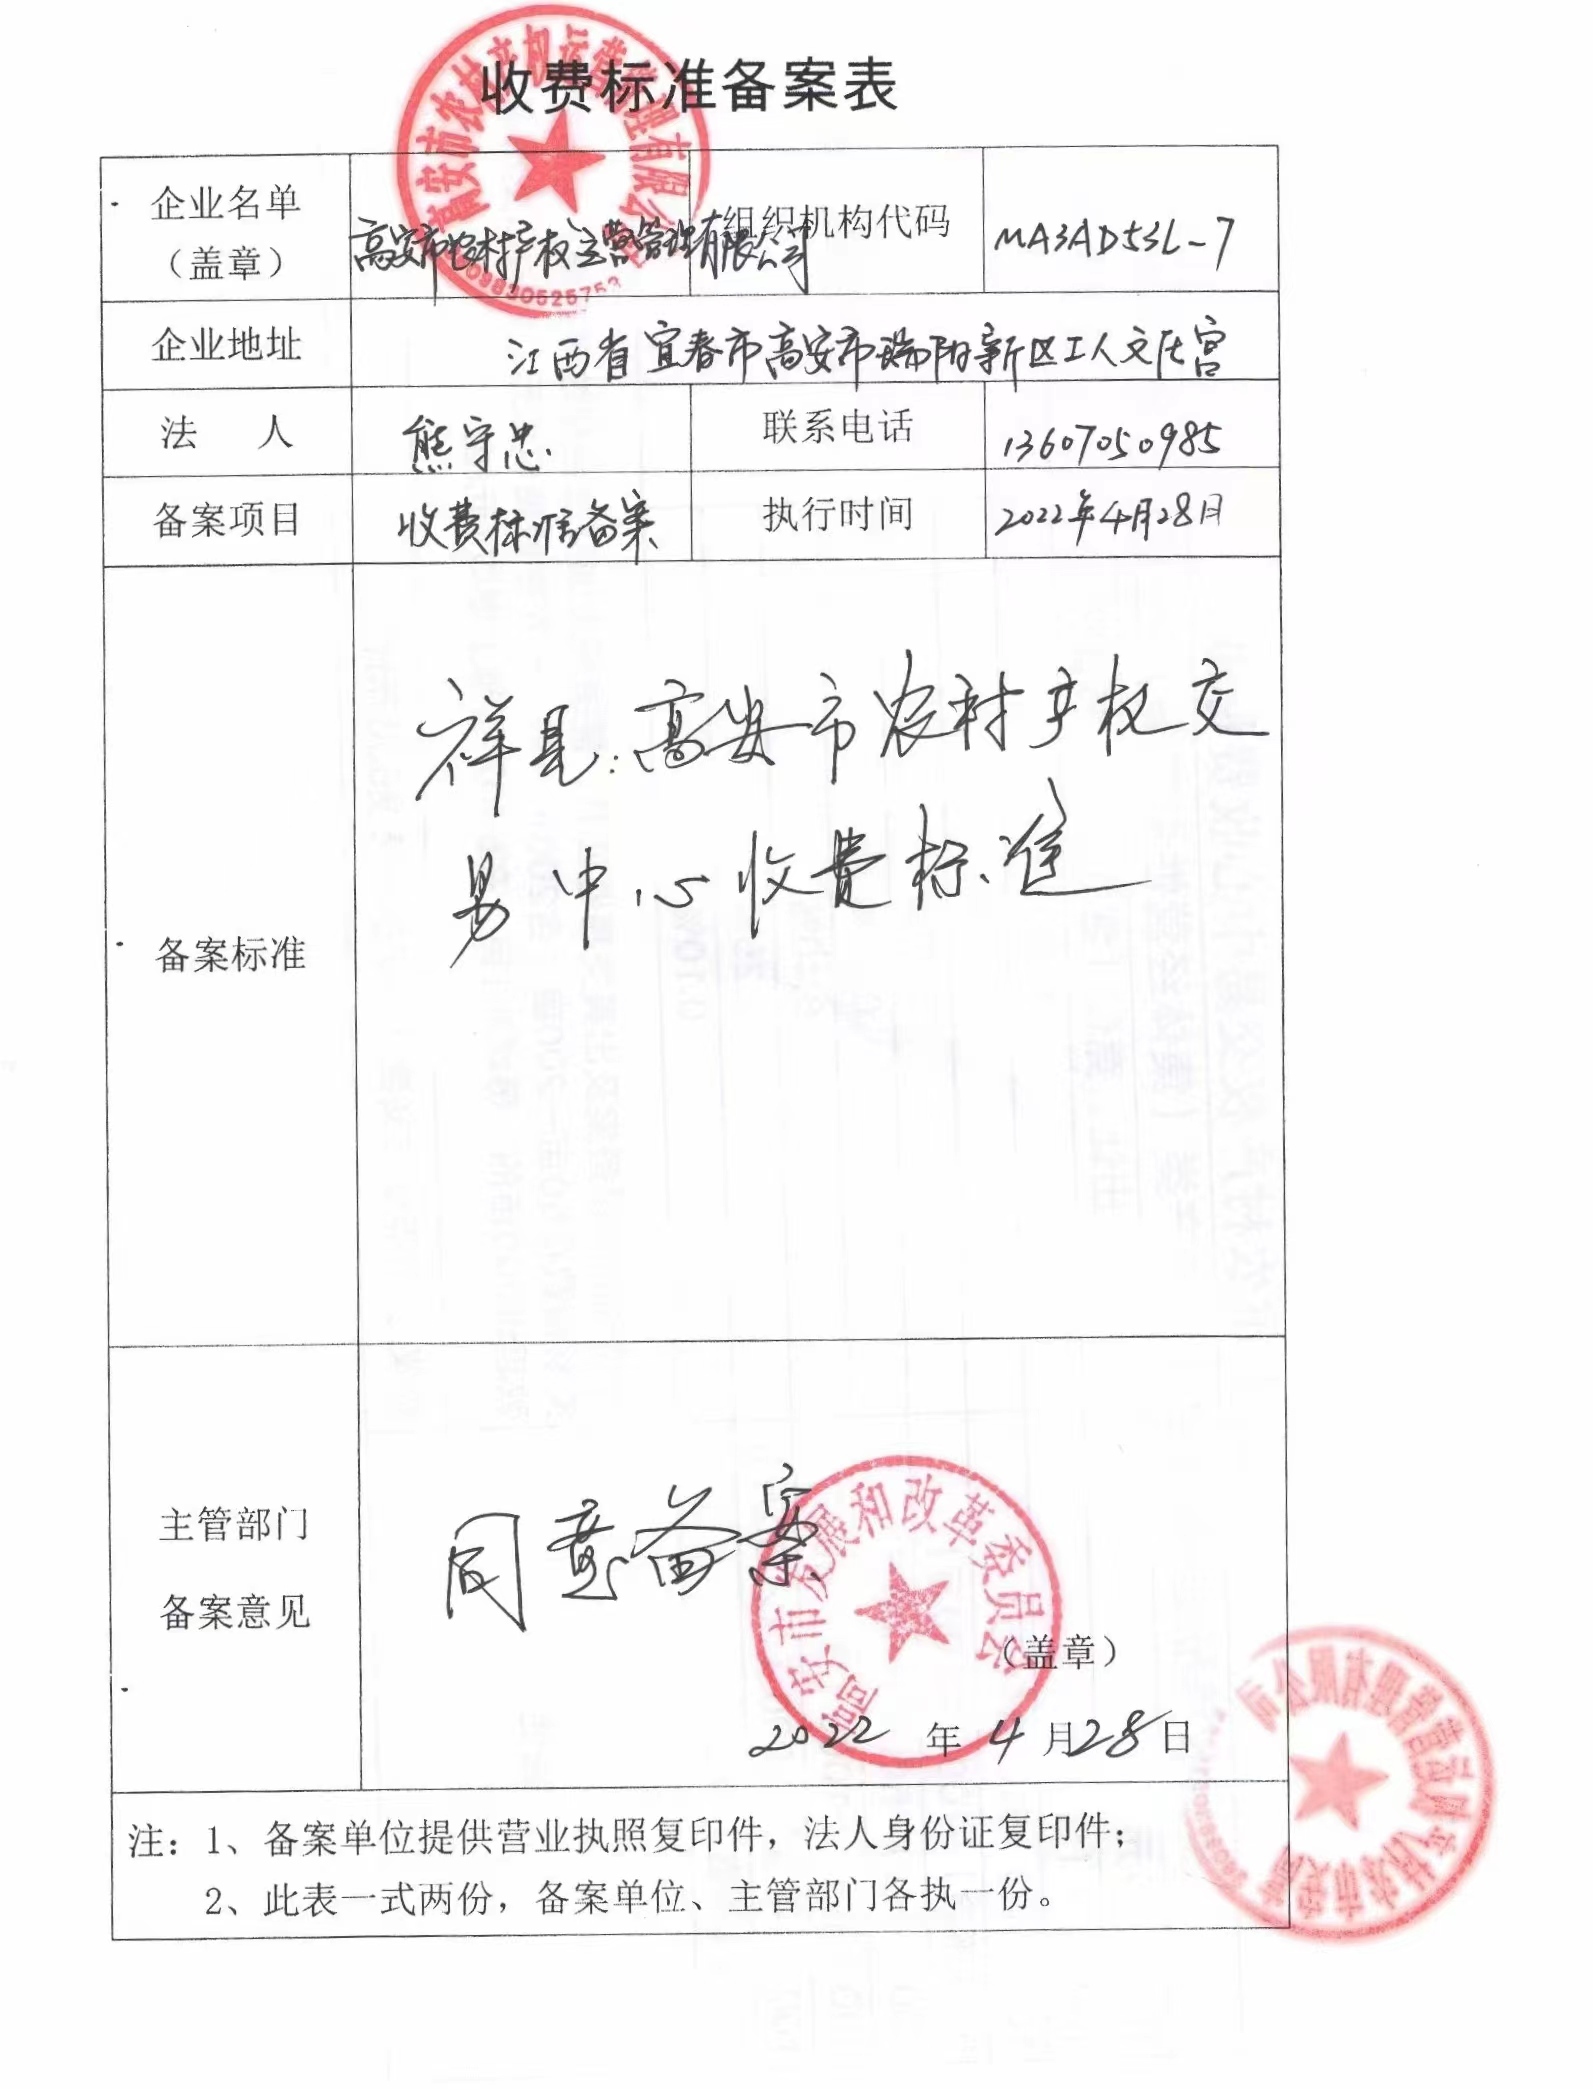 收费标准备案表
企业名单
（盖章）
高安市农村产权运营管理有限公司
组织机构代码
MA3AD53L-7
企业地址
江西省宜春市高安市瑞阳新区工人文化宫
法 人
熊守忠
联系电话
13607050985
备案项目
收费标准备案
执行时间
2022年4月28日
备案标准
祥见:高安市农村产权交
易中心收费标准
主管部门
备案意见
同意备案
高安市发展和改革委员会
（盖章）
2022 年 4 月 28 日
注：1、备案单位提供营业执照复印件，法人身份证复印件；
2、此表一式两份，备案单位、主管部门各执一份。
高安市农村产权运营管理有限公司